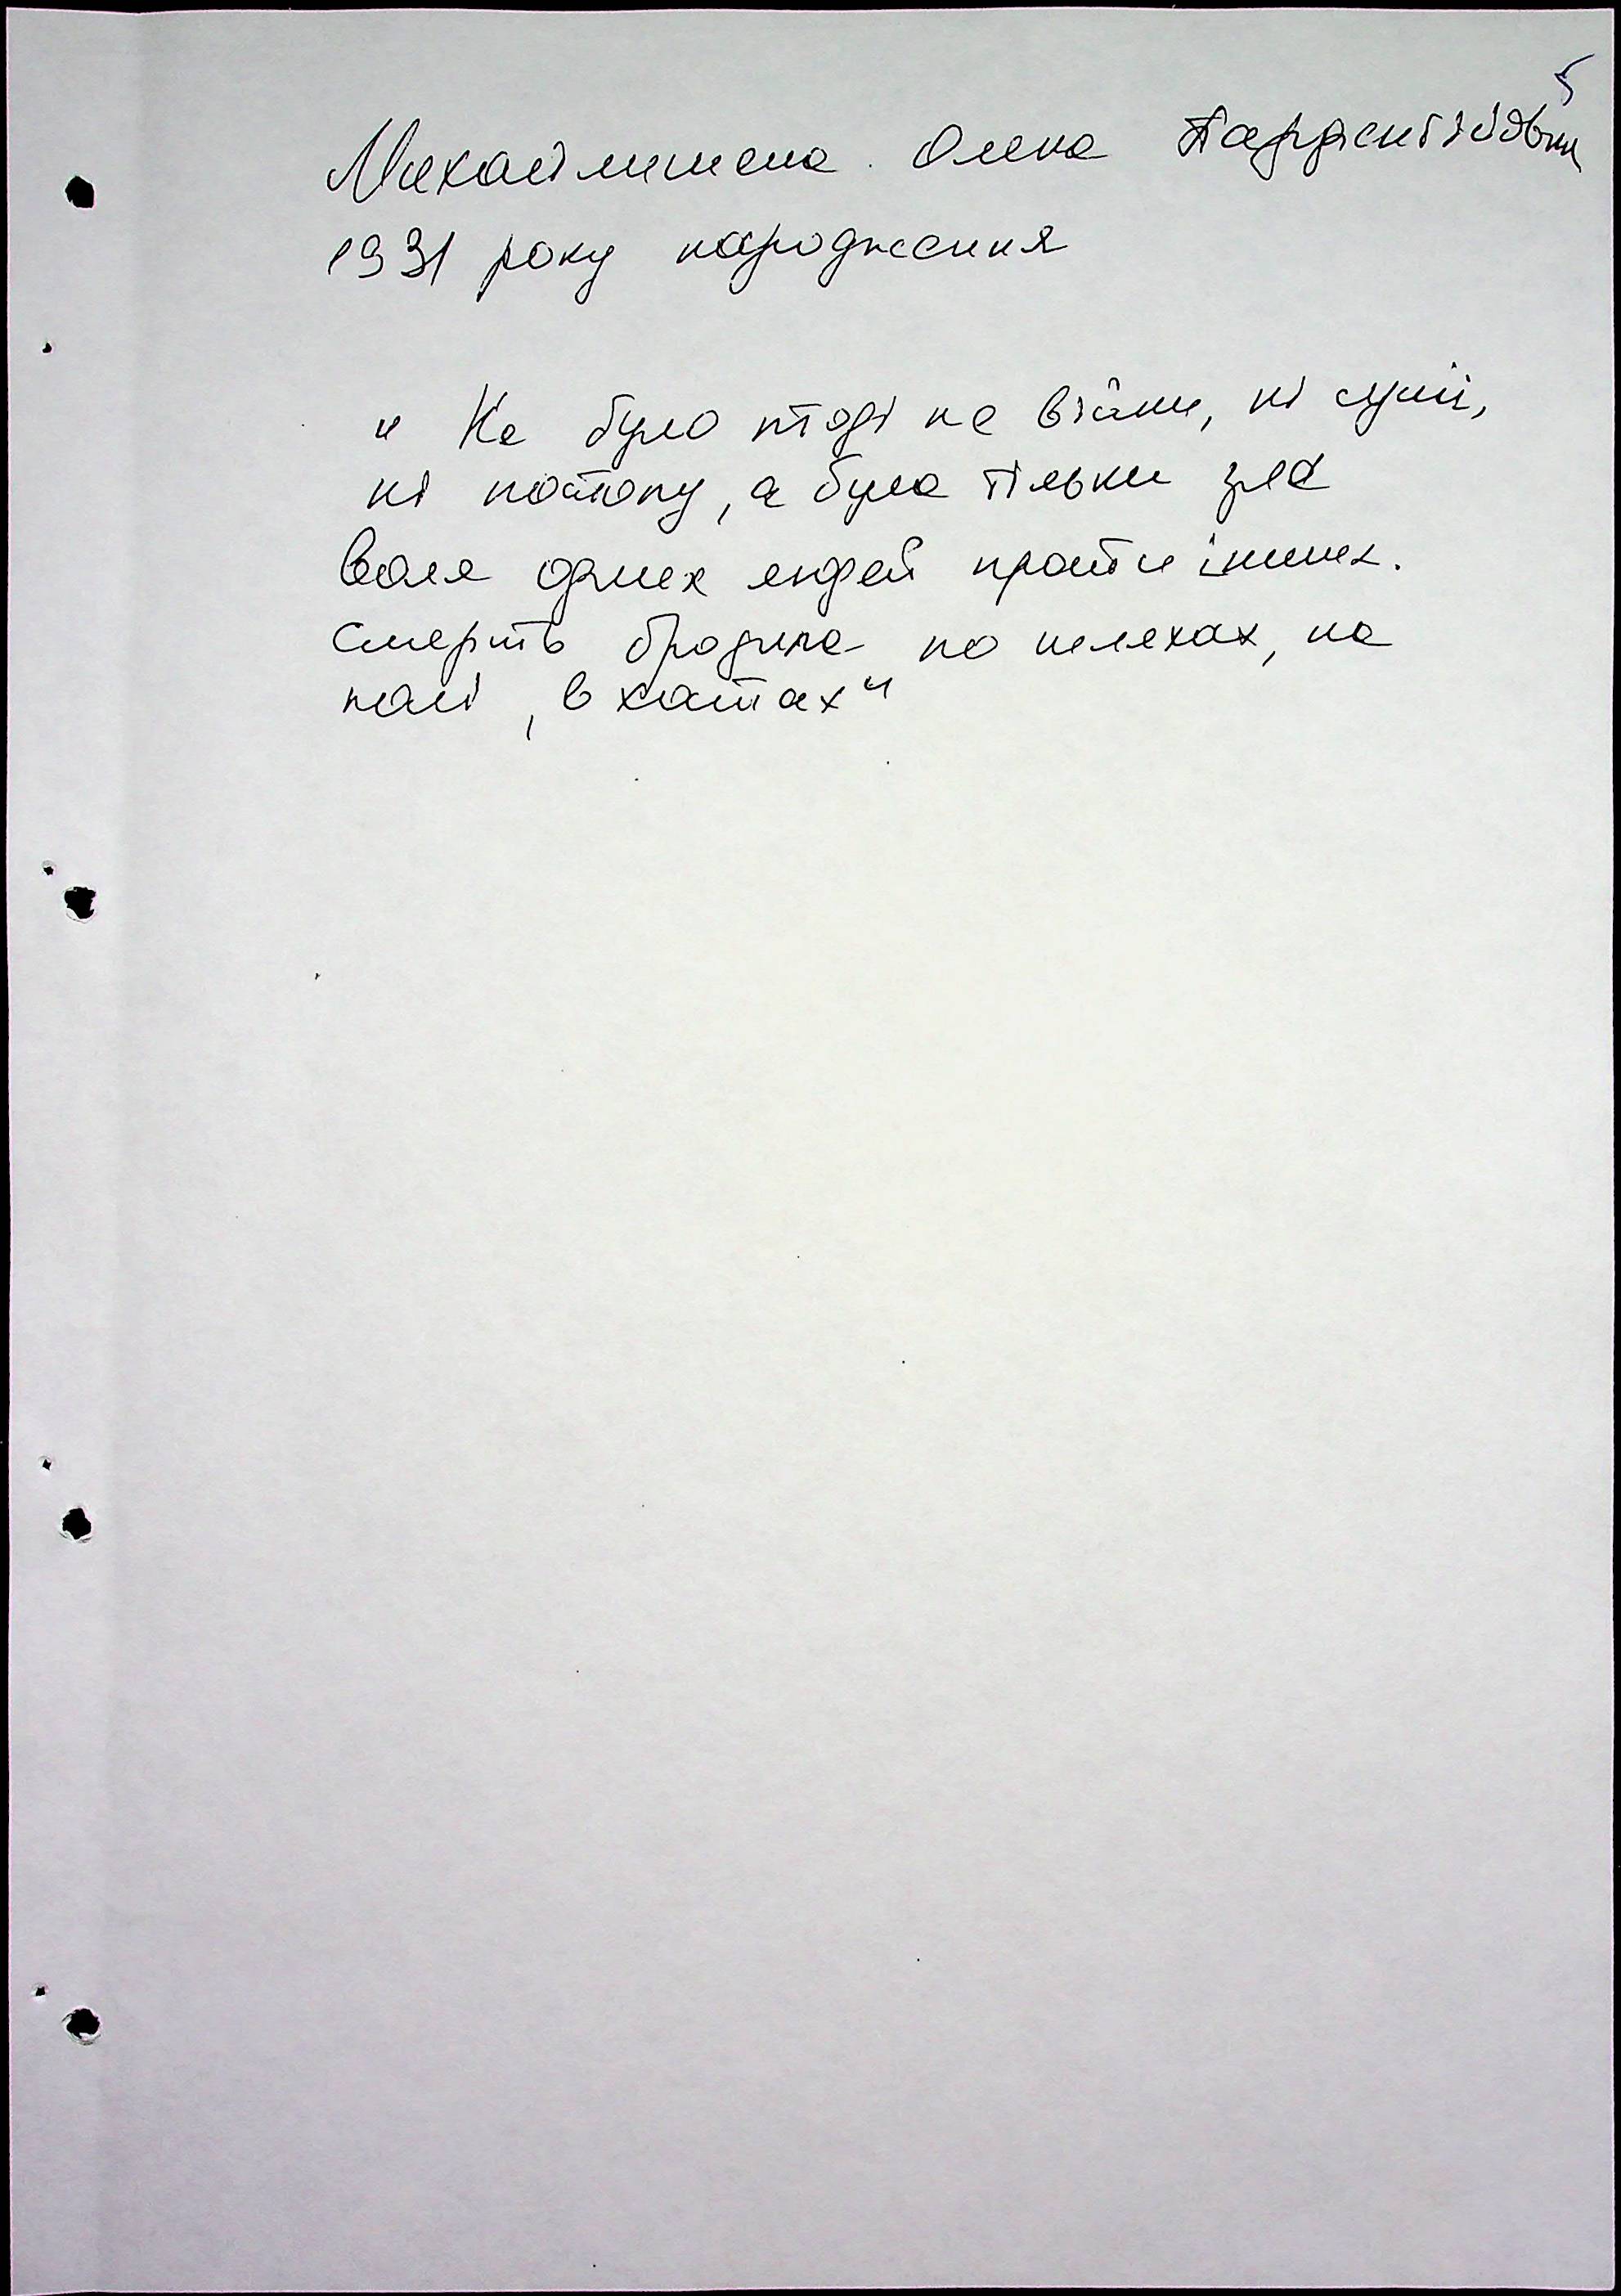 5
Олена Парфентіївна
1931 року народження
" Не було тоді не війни, ні суші,
ні потопу, а була тільки зла
воля одних людей проти інших.
Смерть бродила по шляхах, на
полі, в хатах"